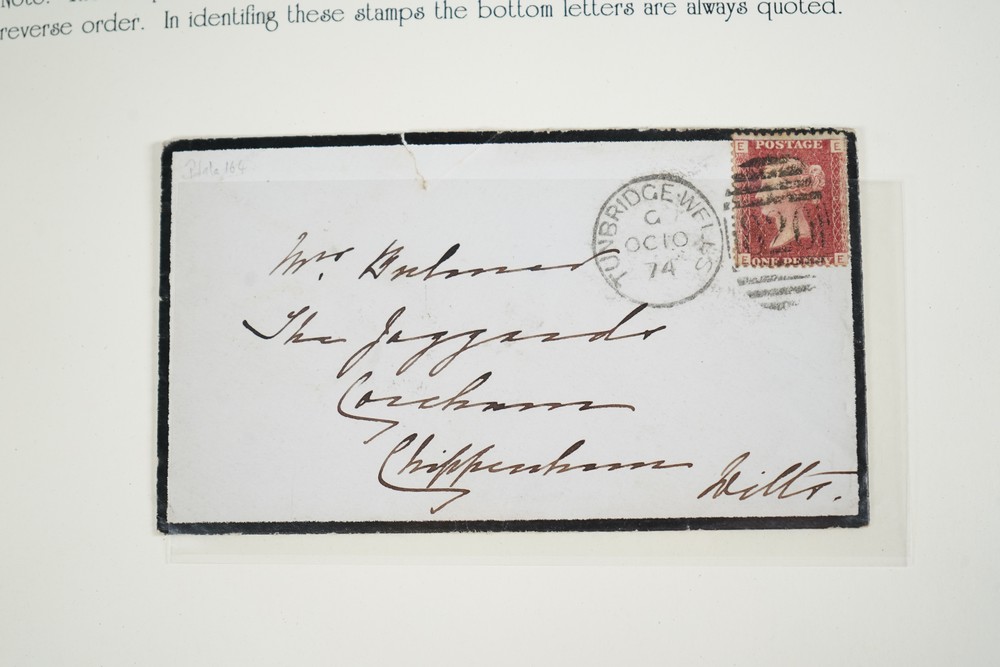 Note:
reverse order. In identifing these stamps the bottom letters are always quoted.
Plate 164
E POSTAGE E
TUNBRIDGE-WELLS
G
OC 10
74
E ONE PENNY E
The Jaggards
Corsham
Chippenham
Wilts.